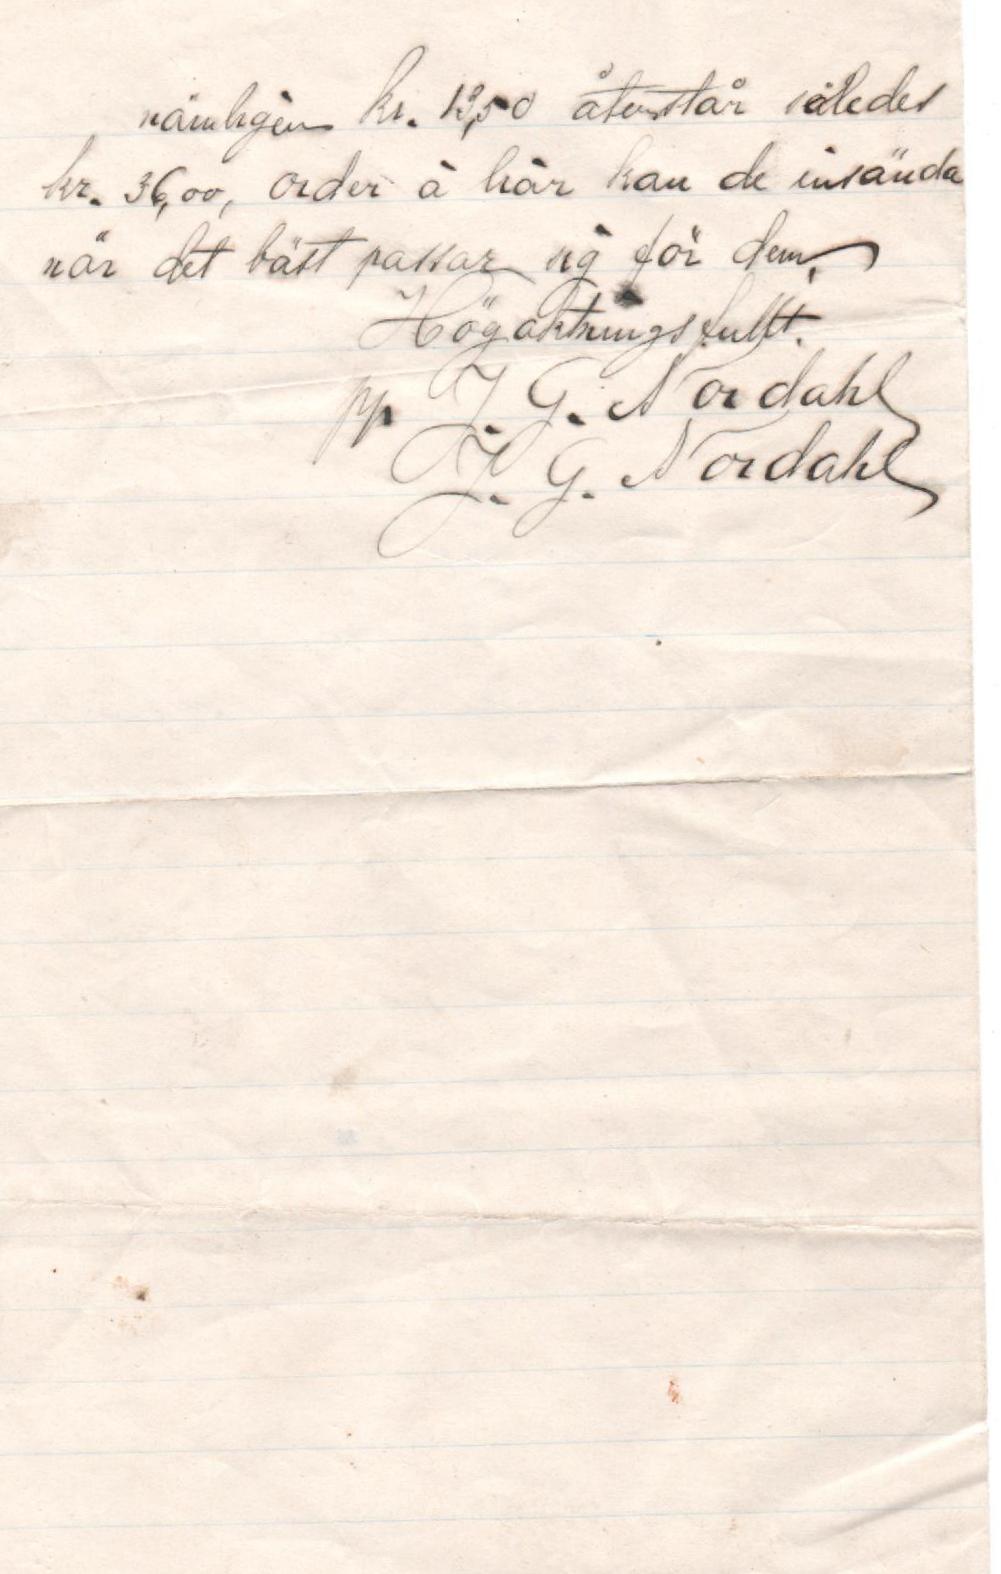 nämligen kr. 13,50 återstår således
kr. 36,00, order å hår kan de insända
når det bäst passar sig för dem,
Högaktningsfullt.
pp J. G. Nordahl
J. G. Nordahl